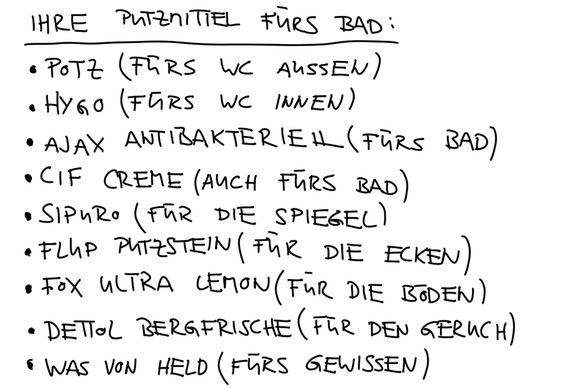 IHRE PUTZMITTEL FÜRS BAD:
• POTZ (FÜRS WC AUSSEN)
• HYGO (FÜRS WC INNEN)
• AJAX ANTIBAKTERIELL (FÜRS BAD)
• CIF CREME (AUCH FÜRS BAD)
• SIPURO (FÜR DIE SPIEGEL)
• FLUP PUTZSTEIN (FÜR DIE ECKEN)
• FOX ULTRA LEMON (FÜR DIE BÖDEN)
• DETTOL BERGFRISCHE (FÜR DEN GERUCH)
• WAS VON HELD (FÜRS GEWISSEN)